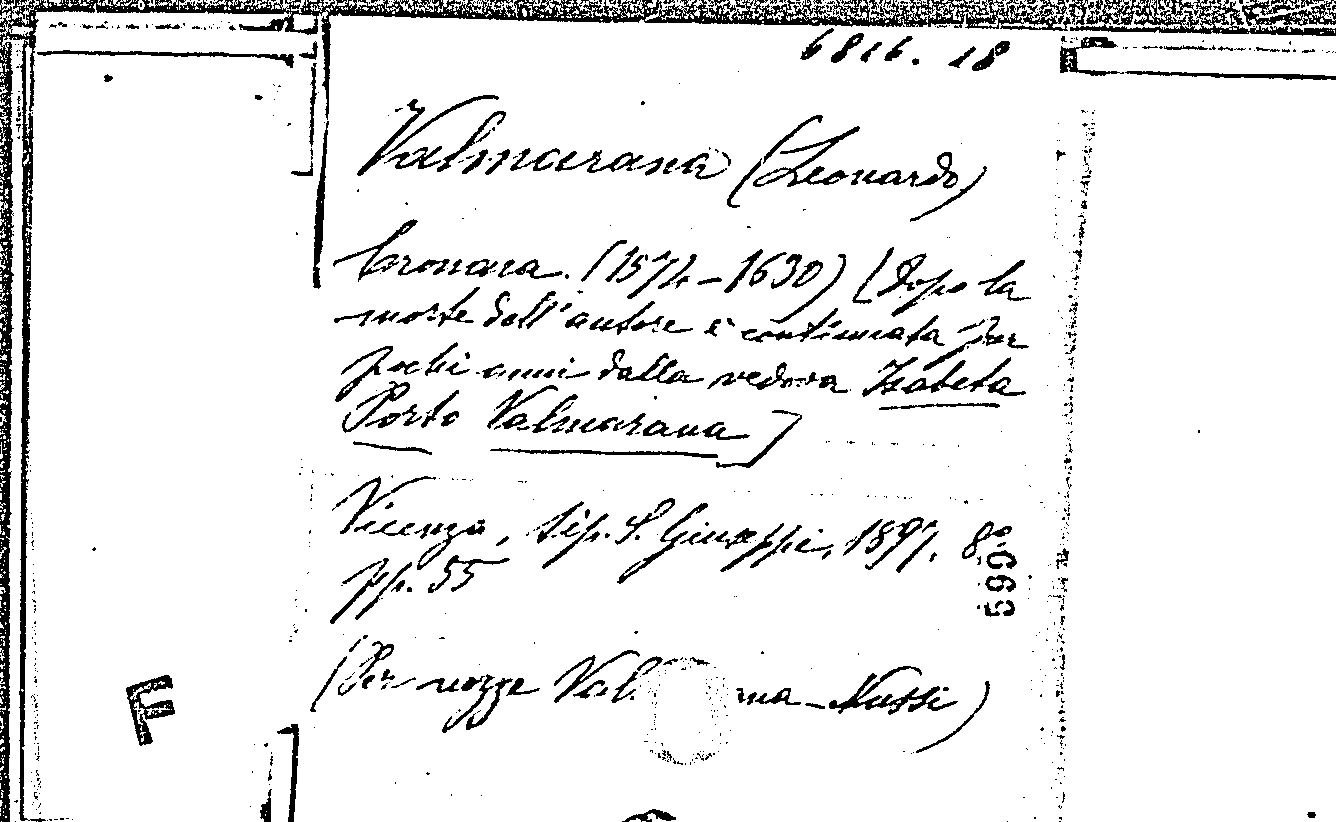 6816. 18
Valmarana (Leonardo)
Cronaca. (1574-1630) [Dopo la
morte dell'autore è continuata per
pochi anni dalla vedova Isabeta
Porto Valmarana]
Vicenza, tip. S. Giuseppe, 1897, 8º
pp. 55
5990
(Per nozze Val ana-Nussi)
F